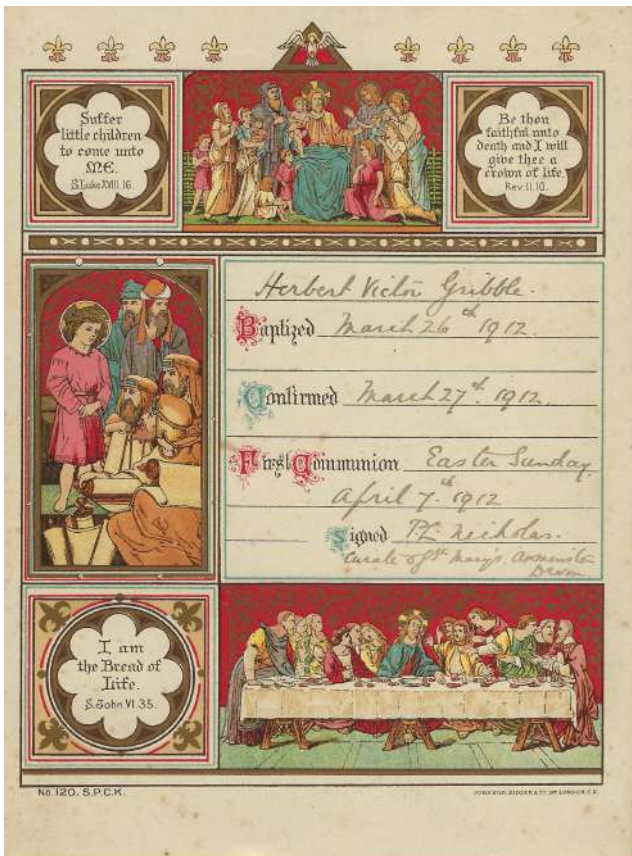 Suffer
little children
to come unto
ME.
S. Luke XVIII. 16.
Be thou
faithful unto
death and I will
give thee a
crown of life.
Rev. II. 10.
Herbert Victor Gribble.
Baptized March 26th 1912.
Confirmed March 27th. 1912.
First Communion Easter Sunday.
April 7th. 1912
Signed P.L. Nicholas.
Curate of St Mary's,
Devon.
I am
the Bread of
Life.
S. John VI. 35.
No. 120. S.P.C.K.